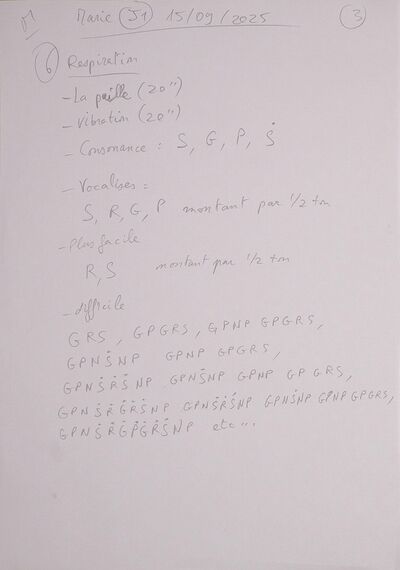 Marie J1 15/09/2025 3
6 Respiration
- La paille (20")
- vibration (20")
- Consonance : S, G, P, Ṡ
- Vocalises :
S, R, G, P montant par 1/2 ton
- Plus facile
R, S montant par 1/2 ton
- difficile
G R S , G P G R S , G P N P G P G R S ,
G P N Ṡ N P G P N P G P G R S ,
G P N Ṡ Ṙ Ṡ N P G P N Ṡ N P G P N P G P G R S ,
G P N Ṡ Ṙ Ġ Ṙ Ṡ N P G P N Ṡ Ṙ Ṡ N P G P N Ṡ N P G P N P G P G R S ,
G P N Ṡ Ṙ Ġ Ṗ Ġ Ṙ Ṡ N P etc ...